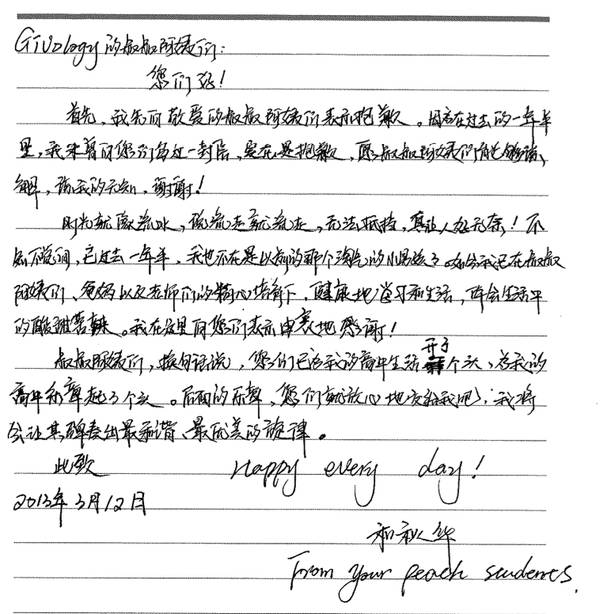 Givology的叔叔阿姨们:
您们好!
首先,我先向敬爱的叔叔阿姨们表示抱歉。因为在过去的一年半
里,我未曾向您们写过一封信,实在是抱歉,愿叔叔阿姨们能够谅
解,谅我的无知,谢谢!
时光就像流水,说流走就流走,无法抵挡,真让人好无奈!不
知不觉间,已过去一年半,我也不在是以前的那个淘气的小男孩了。如今我已在叔叔
阿姨们、爸妈以及老师们的精心培育下,健康地学习和生活,体会生活中
的酸甜苦辣。我在这里向您们表示由衷地感谢!
叔叔阿姨们,换句话说,您们已为我的高中生活开了个头,为我的
高中和声起了个头。后面的后声,您们就放心地交给我吧!我将
会让其弹奏出最和谐、最优美的旋律。
此致 Happy every day!
2013年3月12日
和秋华
From your peach students.